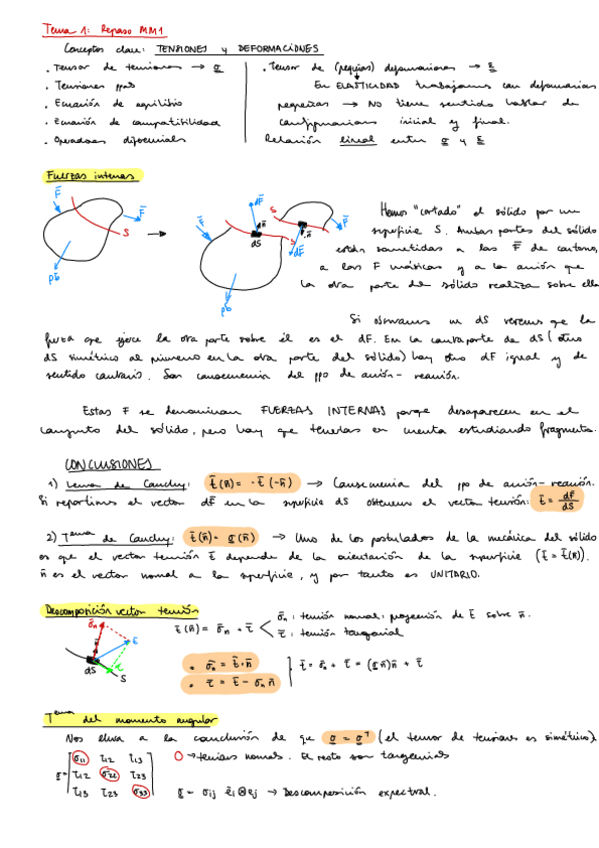 Tema 1: Repaso MM1
Conceptos clave: TENSIONES y DEFORMACIONES
· Tensor de tensiones → σ
· Tensiones ppales
· Ecuación de equilibrio
· Ecuación de compatibilidad
· Operadores diferenciales
· Tensor de (pequeñas) deformaciones → ε
En ELASTICIDAD trabajamos con deformaciones
pequeñas → No tiene sentido hablar de
configuraciones inicial y final.
Relación lineal entre σ y ε
Fuerzas internas
F̄ F̄ S ρb̄
F̄ dF̄ n̄ S dS S n̄ dF̄ F̄ ρb̄
Hemos "cortado" el sólido por una
superficie S. Ambas partes del sólido
están sometidas a las F̄ de contorno,
a las F másicas y a la acción que
la otra parte del sólido realiza sobre ella
Si observamos un dS veremos que la
fuerza que ejerce la otra parte sobre él es el dF. En la contraparte de dS (otro
dS simétrico al primero en la otra parte del sólido) hay otro dF igual y de
sentido contrario. Son consecuencia del ppo de acción-reacción.
Estas F se denominan FUERZAS INTERNAS porque desaparecen en el
conjunto del sólido, pero hay que tenerlas en cuenta estudiando fragmentos.
CONCLUSIONES
1) Lema de Cauchy: t̄(n̄) = -t̄(-n̄) → Consecuencia del ppo de acción-reacción.
Si repartimos el vector dF̄ en la superficie dS obtenemos el vector tensión: t̄ = dF̄/dS
2) Tema de Cauchy: t̄(n̄) = σ(n̄) → Uno de los postulados de la mecánica del sólido
es que el vector tensión t̄ depende de la orientación de la superficie (t̄ = t̄(n̄)).
n̄ es el vector normal a la superficie, y por tanto es UNITARIO.
Descomposición vector tensión
σ̄n n̄ t̄ τ̄ dS S
t̄(n̄) = σ̄n + τ̄
σ̄n: tensión normal: proyección de t̄ sobre n̄.
τ̄: tensión tangencial
• σ̄n = t̄·n̄
• τ̄ = t̄ - σn n̄
t̄ = σ̄n + τ̄ = (σ n̄)n̄ + τ̄
Tema del momento angular
Nos lleva a la conclusión de que σ = σᵀ (el tensor de tensiones es simétrico).
σ = [σ11 τ12 τ13
τ12 σ22 τ23
τ13 τ23 σ33]
O → tensiones normales. El resto son tangenciales
σ = σij ēi⊗ēj → Descomposición espectral.